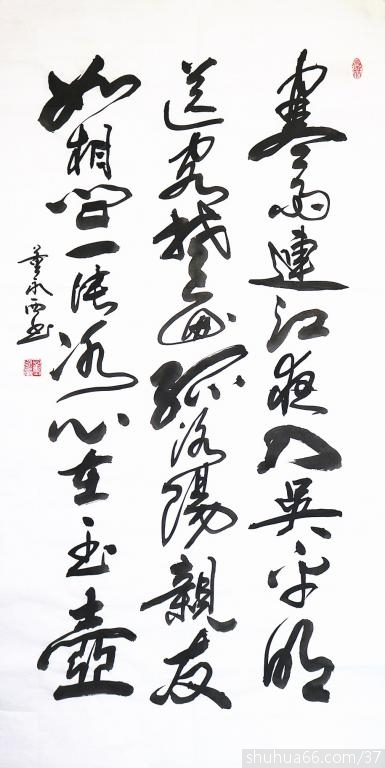 寒雨連江夜入吳平明
送客楚山孤洛陽親友
如相问一片冰心在玉壺
董永西书
shuhua66.com/37